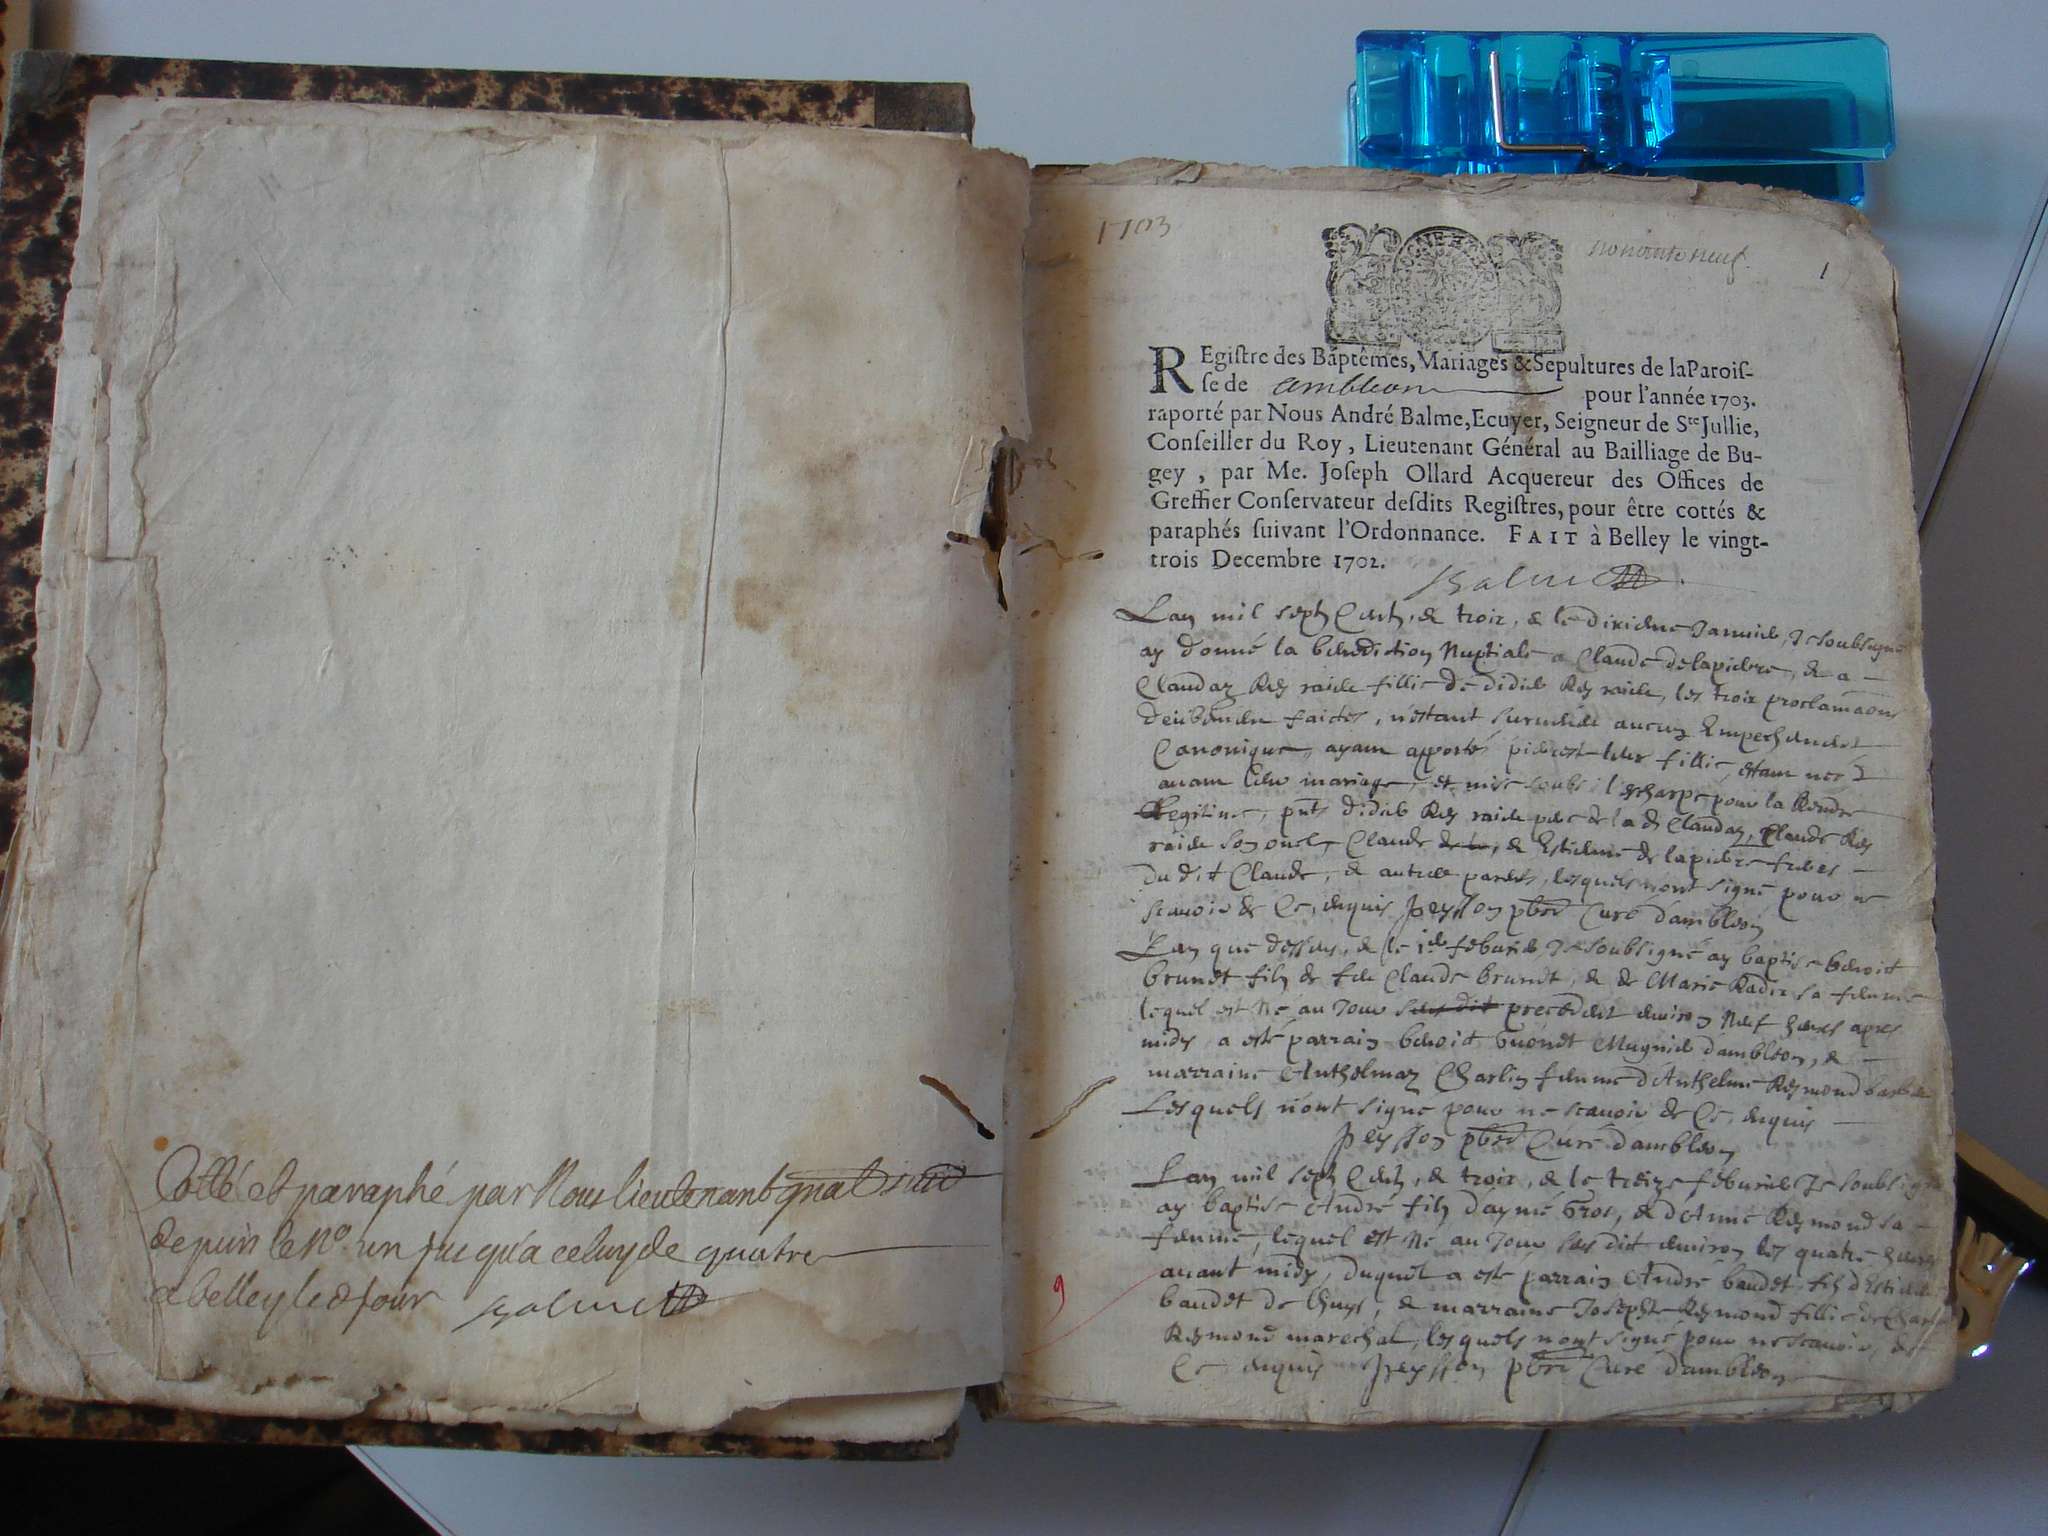 Cotté et paraphé par Nous lieutenant gnal
depuis le No. un jusqu'a celuy de quatre
a belley led jour Balme
1703
nonante neuf
1
REgiſtre des Baptêmes, Mariages & Sepultures de la Paroiſ-
ſe de ambleon pour l'année 1703.
raporté par Nous André Balme, Ecuyer, Seigneur de Ste Jullie,
Conſeiller du Roy, Lieutenant Général au Bailliage de Bu-
gey, par Me. Joſeph Ollard Acquereur des Offices de
Greffier Conſervateur deſdits Regiſtres, pour être cottés &
paraphés ſuivant l'Ordonnance. FAIT à Belley le vingt-
trois Decembre 1702.
Balme
Lan mil sept Cents, & trois, & le dixieme Janvier, Je soubsigné
ay donné la benediction Nuptiale a Claude delapierre, & a
Claudaz fillie de didier les trois proclamaons
faictes, n'estant survenue aucun Empechement
Canonique, ayant apporté fillie, estant nee
avant leur mariage, et mise soubs l'escharpe pour la Rendre
Legitime, pnts didier pere de la d Claudaz, Claude
son oncle, Claude & Estienne de lapierre freres
du dit Claude, & autres parents, lesquels n'ont signé pour ne
scavoir de Ce, enquis peysson pbre Curé dambleon
Lan que dessus, & le febvrier Je soubsigné ay baptisé benoit
brunet fils de feu Claude brunet, & de Marie sa femme
lequel est Né au Jour sus dit precedent environ Neuf heures apres
midy a esté parrain benoit Mugnier dambleon, &
marraine Anthelmaz Charlin femme d'Anthelme Reymond
Lesquels n'ont signé pour ne scavoir de Ce, enquis
peysson pbre Curé dambleon
Lan mil sept Cents, & trois, & le treize febvrier Je soubsigné
ay baptisé André fils d'aymé Gros, & d'Anne Reymond sa
femme, lequel est Né au Jour sus dit environ les quatre heures
avant midy, duquel a esté parrain André baudet fils d'Estienne
baudet de lhuys, & marraine Josephte Reymond fillie de Charles
Reymond marechal, lesquels n'ont signé pour ne scavoir, de
Ce enquis peysson pbre Curé dambleon
9